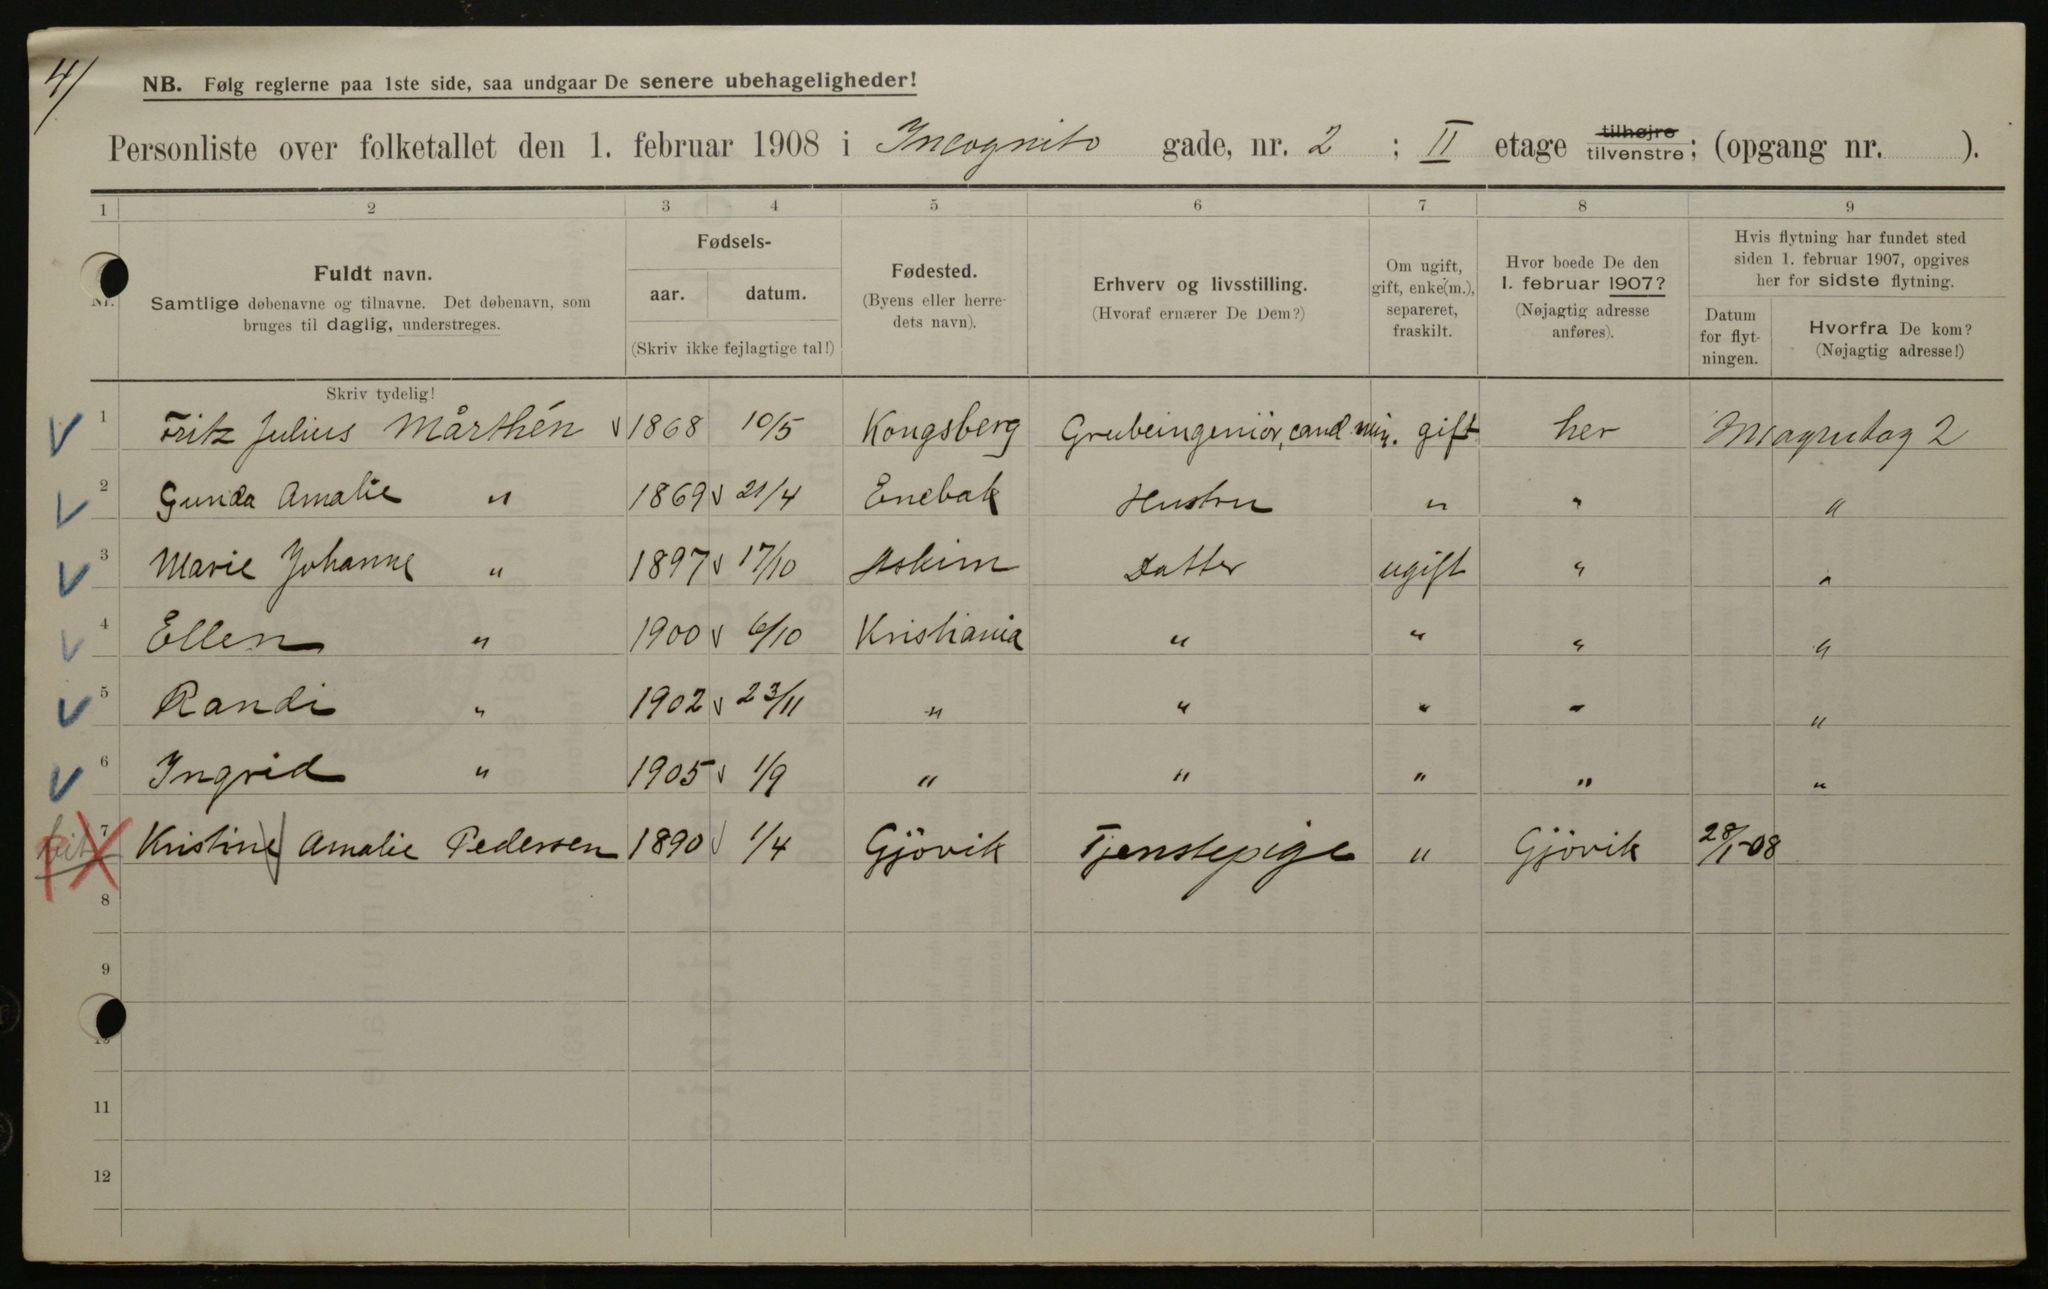 4/
NB. Følg reglerne paa 1ste side, saa undgaar De senere ubehageligheder!
Personliste over folketallet den 1. februar 1908 i Incognito gade, nr. 2 ; II etage tilhøjre tilvenstre; (opgang nr. ).
1 2 3 4 5 6 7 8 9
Nr.
Fuldt navn.
Samtlige døbenavne og tilnavne. Det døbenavn, som
bruges til daglig, understreges.
Fødsels-
aar. datum.
(Skriv ikke fejlagtige tal!)
Fødested.
(Byens eller herre-
dets navn).
Erhverv og livsstilling.
(Hvoraf ernærer De Dem?)
Om ugift,
gift, enke(m.),
separeret,
fraskilt.
Hvor boede De den
1. februar 1907?
(Nøjagtig adresse
anføres).
Hvis flytning har fundet sted
siden 1. februar 1907, opgives
her for sidste flytning.
Datum
for flyt-
ningen.
Hvorfra De kom?
(Nøjagtig adresse!)
Skriv tydelig!
1 Fritz Julius Mårthén 1868 10/5 Kongsberg Grubeingeniör, cand min. gift her 2
2 Gunda Amalie " 1869 21/4 Enebak Hustru " " "
3 Marie Johanne " 1897 17/10 Askim Datter ugift " "
4 Ellen " 1900 6/10 Kristiania " " " "
5 Randi " 1902 23/11 " " " " "
6 Ingrid " 1905 1/9 " " " " "
7 Kristine Amalie Pedersen 1890 1/4 Gjövik Tjenstepige " Gjövik 28/1-08
8
9
10
11
12